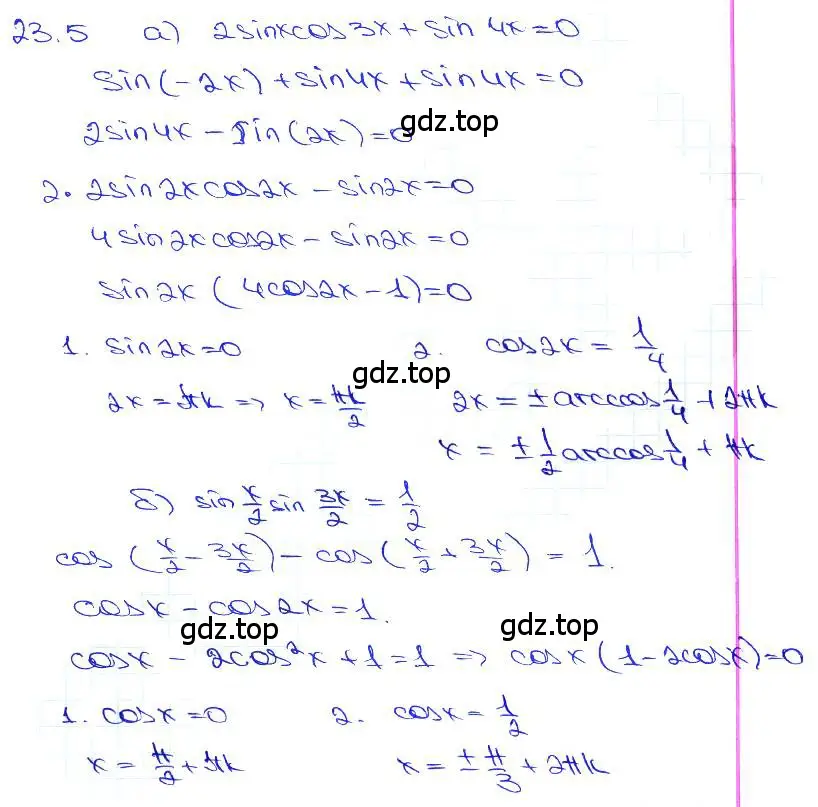 23.5 а) 2sinxcos3x + sin 4x = 0
sin(-2x) + sin4x + sin4x = 0
2sin4x - sin(2x) = 0
gdz.top
2. 2sin2xcos2x - sin2x = 0
4sin2xcos2x - sin2x = 0
sin2x (4cos2x - 1) = 0
1. sin2x = 0 2. cos2x = 1/4
gdz.top
2x = πk => x = πk/2 2x = ± arccos 1/4 + 2πk
x = ± 1/2 arccos 1/4 + πk
б) sin x/2 sin 3x/2 = 1/2
cos (x/2 - 3x/2) - cos (x/2 + 3x/2) = 1.
cosx - cos2x = 1.
gdz.top gdz.top
cosx - 2cos²x + 1 = 1 => cosx (1 - 2cosx) = 0
1. cosx = 0 2. cosx = 1/2
x = π/2 + πk x = ± π/3 + 2πk